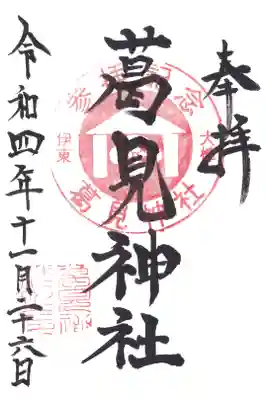 奉拝
葛見神社
令和四年十一月二十六日
参拝記念
伊東
大楠
葛見神社